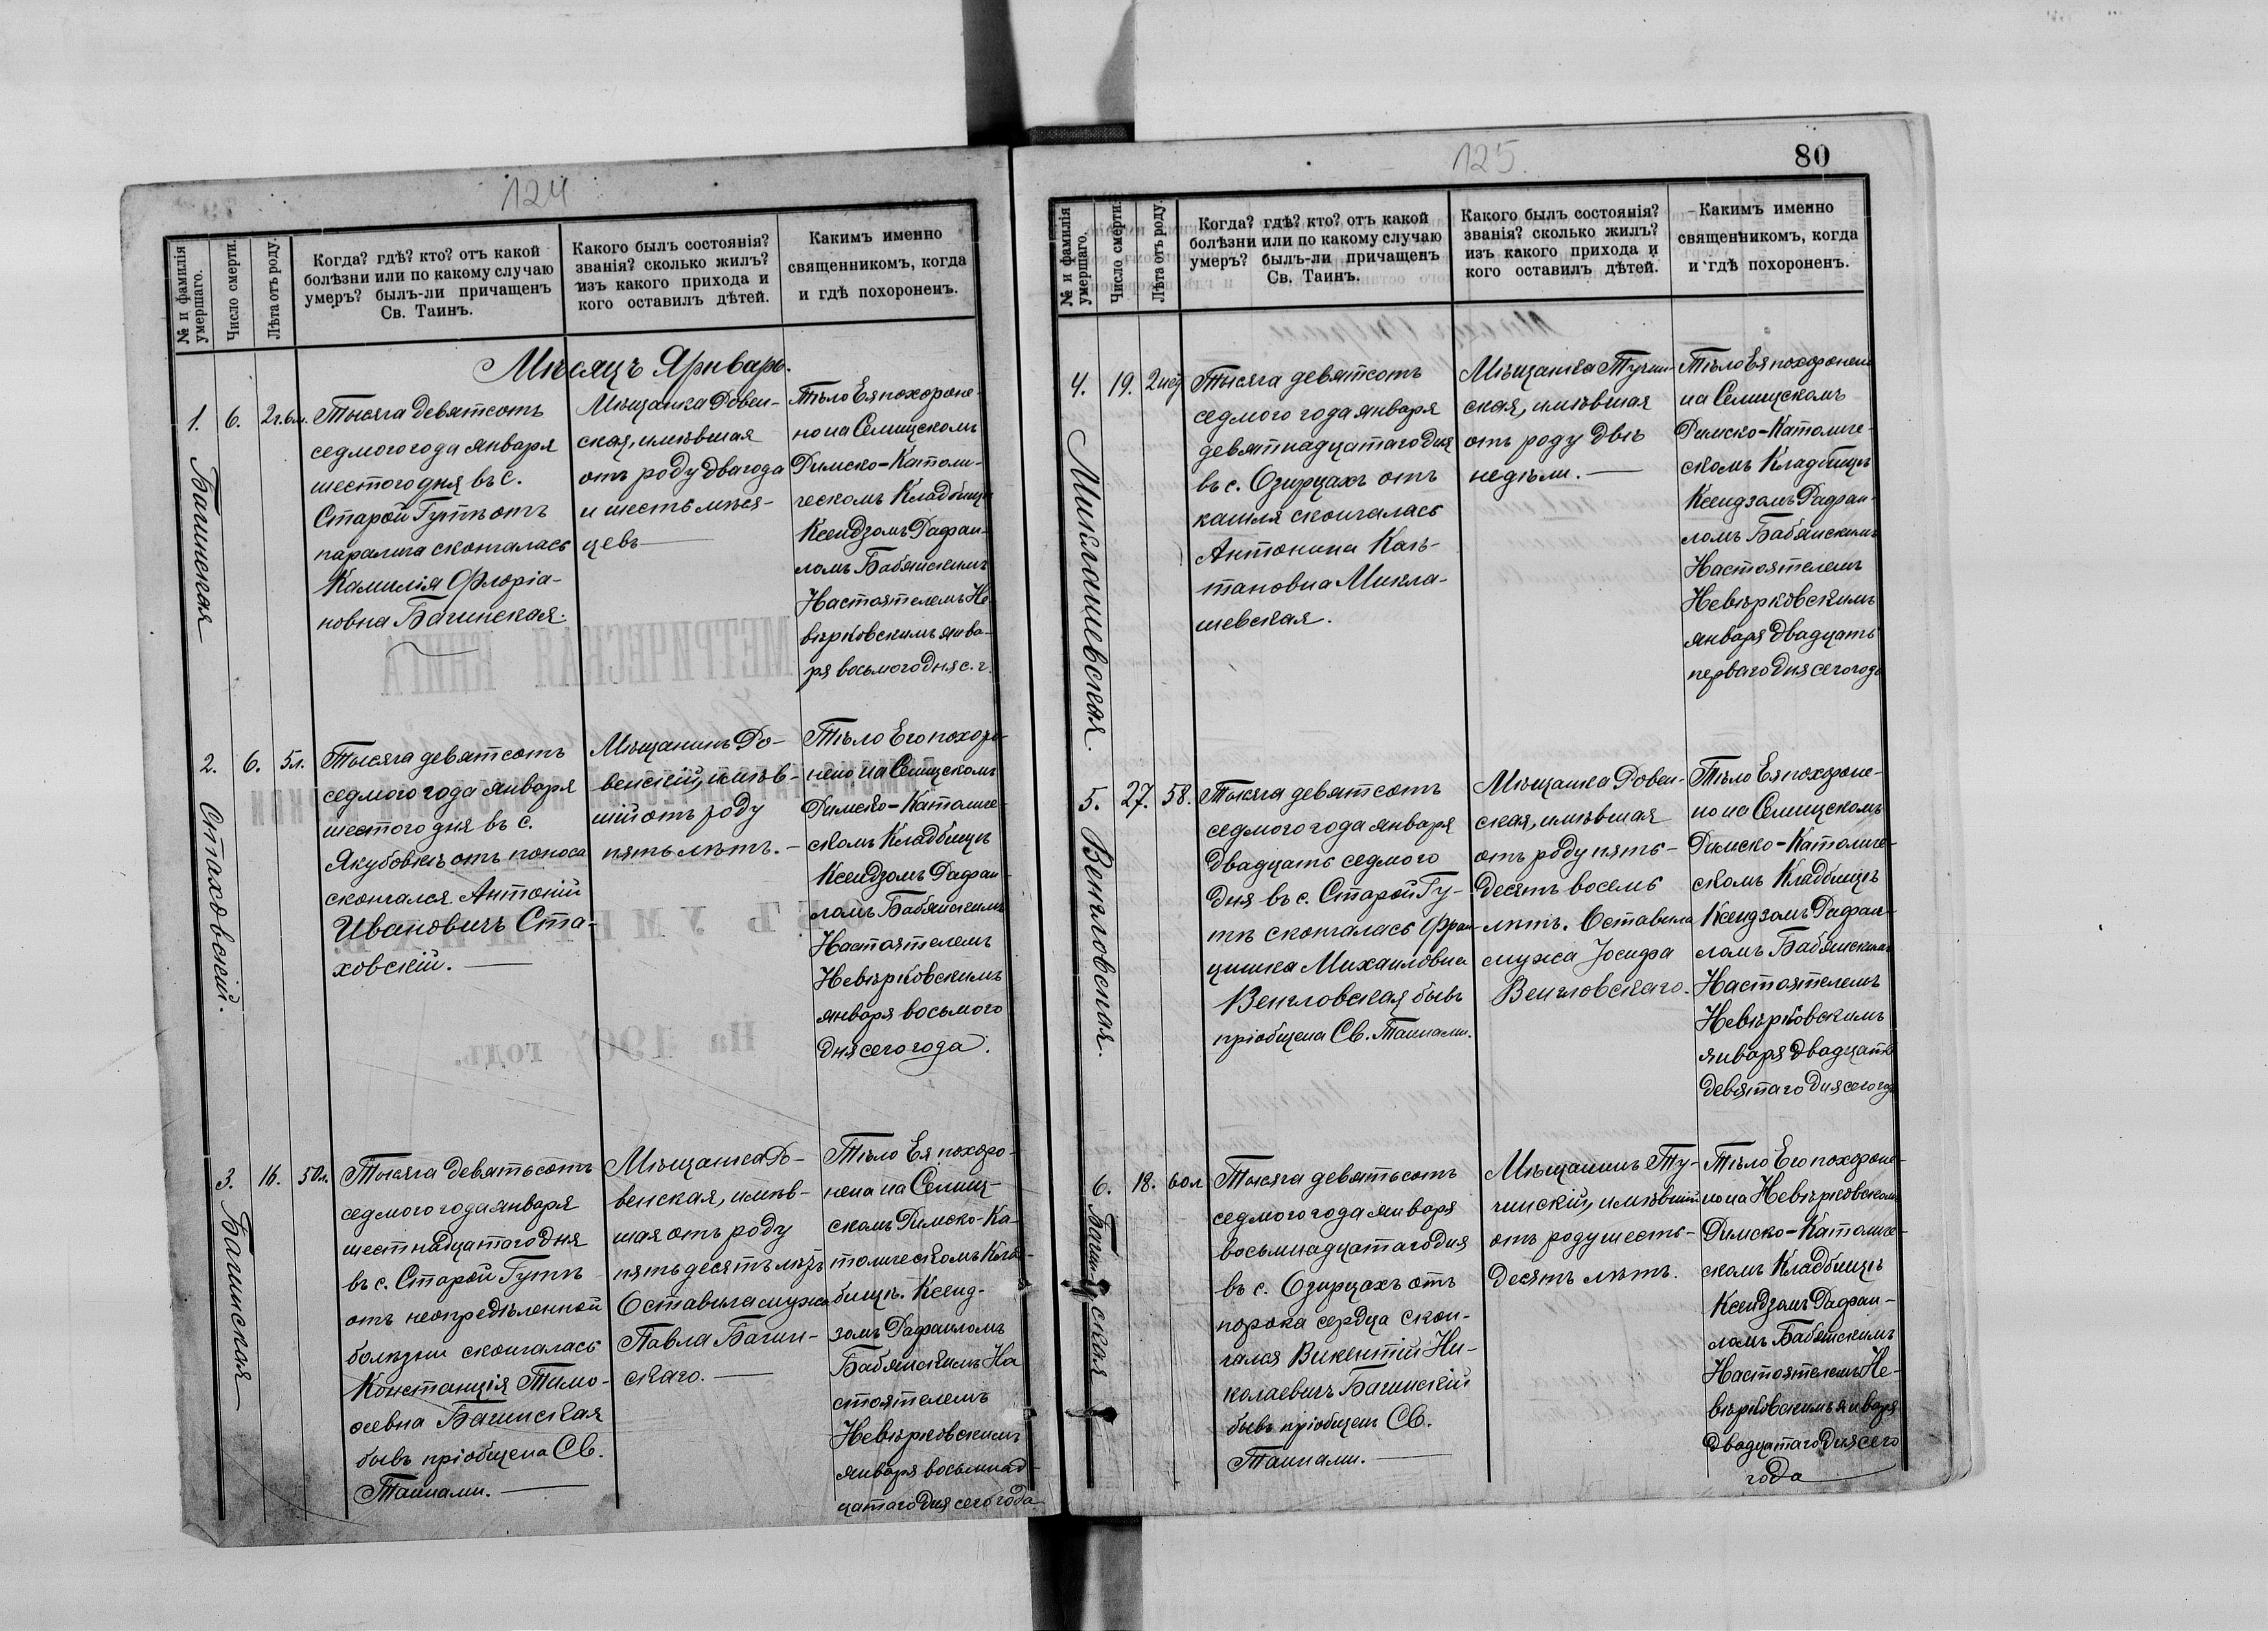 124
№ и фамилія умершаго.
Число смерти.
Лѣта отъ роду.
Когда? гдѣ? кто? отъ какой
болѣзни или по какому случаю
умеръ? былъ-ли причащенъ
Св. Таинъ.
Какого былъ состоянія?
званія? сколько жилъ?
изъ какого прихода и
кого оставилъ дѣтей.
Какимъ именно
священникомъ, когда
и гдѣ похороненъ.
Мѣсяцъ Январь.
1. Багинская
6.
2г. 6м.
Тысяча девятсотъ
седмого года января
шестого дня въ с.
Старой Гутѣ отъ
паралича скончалась
Камилія Флоріа-
новна Багинская.
Мѣщанка Ровен-
ская, имѣвшая
отъ роду два года
и шесть мѣся-
цевъ —
Тѣло Ея похороне-
но на Селищскомъ
Римско-Католи-
ческомъ Кладбищѣ
Ксендзомъ Рафаи-
ломъ Бабянскимъ
Настоятелемъ Не-
вѣрковскимъ янва-
ря восьмого дня с. г.
2. Стаховскій.
6.
5л.
Тысяча девятсотъ
седмого года января
шестого дня въ с.
Якубовкѣ отъ поноса
скончался Антоній
Ивановичъ Ста-
ховскій. —
Мѣщанинъ Ро-
венскій, имѣв-
шій отъ роду
пять лѣтъ. —
Тѣло Его похоро-
нено на Селищскомъ
Римско-Католиче-
скомъ Кладбищѣ
Ксендзомъ Рафаи-
ломъ Бабянскимъ
Настоятелемъ
Невѣрковскимъ
января восьмого
дня сего года.
3. Багинская
16.
50л.
Тысяча девятьсотъ
седмого года января
шестнадцатаго дня
въ с. Старой Гутѣ
отъ неопредѣленной
болѣзни скончалась
Констанція Тимо-
феевна Багинская
бывъ пріобщена Св.
Таинами. —
Мѣщанка Ро-
венская, имѣв-
шая отъ роду
пятьдесятъ лѣтъ
Оставила мужа
Павла Багин-
скаго. —
Тѣло Ея похоро-
нена на Селищ-
скомъ Римско-Ка-
толическомъ Клад-
бищѣ. Ксенд-
зомъ Рафаиломъ
Бабянскимъ На
стоятелемъ
Невѣрковскимъ
января восьмнад-
цатаго дня сего года
125.
80
№ и фамилія умершаго.
Число смерти.
Лѣта отъ роду.
Когда? гдѣ? кто? отъ какой
болѣзни или по какому случаю
умеръ? былъ-ли причащенъ
Св. Таинъ.
Какого былъ состоянія?
званія? сколько жилъ?
изъ какого прихода и
кого оставилъ дѣтей.
Какимъ именно
священникомъ, когда
и гдѣ похороненъ.
4. Миклашевская.
19.
2 нед
Тысяча девятсотъ
седмого года января
девятнадцатаго дня
въ с. Озирцахъ отъ
кашля скончалась
Антонина Каэ-
тановна Микла-
шевская.
Мѣщанка Тучин-
ская, имѣвшая
отъ роду двѣ
недѣли. —
Тѣло Ея похоронено
на Селищскомъ
Римско-Католиче-
скомъ Кладбищѣ
Ксендзомъ Рафаи-
ломъ Бабянскимъ
Настоятелемъ
Невѣрковскимъ
января двадцать
перваго дня сего года
5. Венгловская.
27.
58.
Тысяча девятсотъ
седмого года января
двадцать седмого
дня въ с. Старой Гу-
тѣ скончалась Фран-
цишка Михаиловна
Венгловская бывъ
пріобщена Св. Таинами.
Мѣщанка Ровен-
ская, имѣвшая
отъ роду пять-
десятъ восемь
лѣтъ. Оставила
мужа Іосифа
Венгловскаго.
Тѣло Ея похороне-
но на Селищскомъ
Римско-Католиче-
скомъ Кладбищѣ
Ксендзомъ Рафаи-
ломъ Бабянскимъ
Настоятелемъ
Невѣрковскимъ
января двадцать
девятаго дня сего года
6.
18.
60л
Тысяча девятьсотъ
седмого года января
восьмнадцатаго дня
въ с. Озирцахъ отъ
порока сердца скон-
чался Викентій Ни-
колаевичъ Багинскій
бывъ пріобщенъ Св.
Таинами. —
Мѣщанинъ Ту-
чинскій, имѣвшій
отъ роду шесть-
десятъ лѣтъ.
Тѣло Его похороне-
но на Невѣрковскомъ
Римско-Католиче-
скомъ Кладбищѣ
Ксендзомъ Рафаи-
ломъ Бабянскимъ
Настоятелемъ Не-
вѣрковскимъ января
двадцатаго дня сего
года